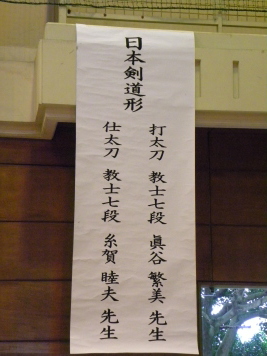 日本剣道形
打太刀 教士七段 眞谷 繁美 先生
仕太刀 教士七段 糸賀 睦夫 先生